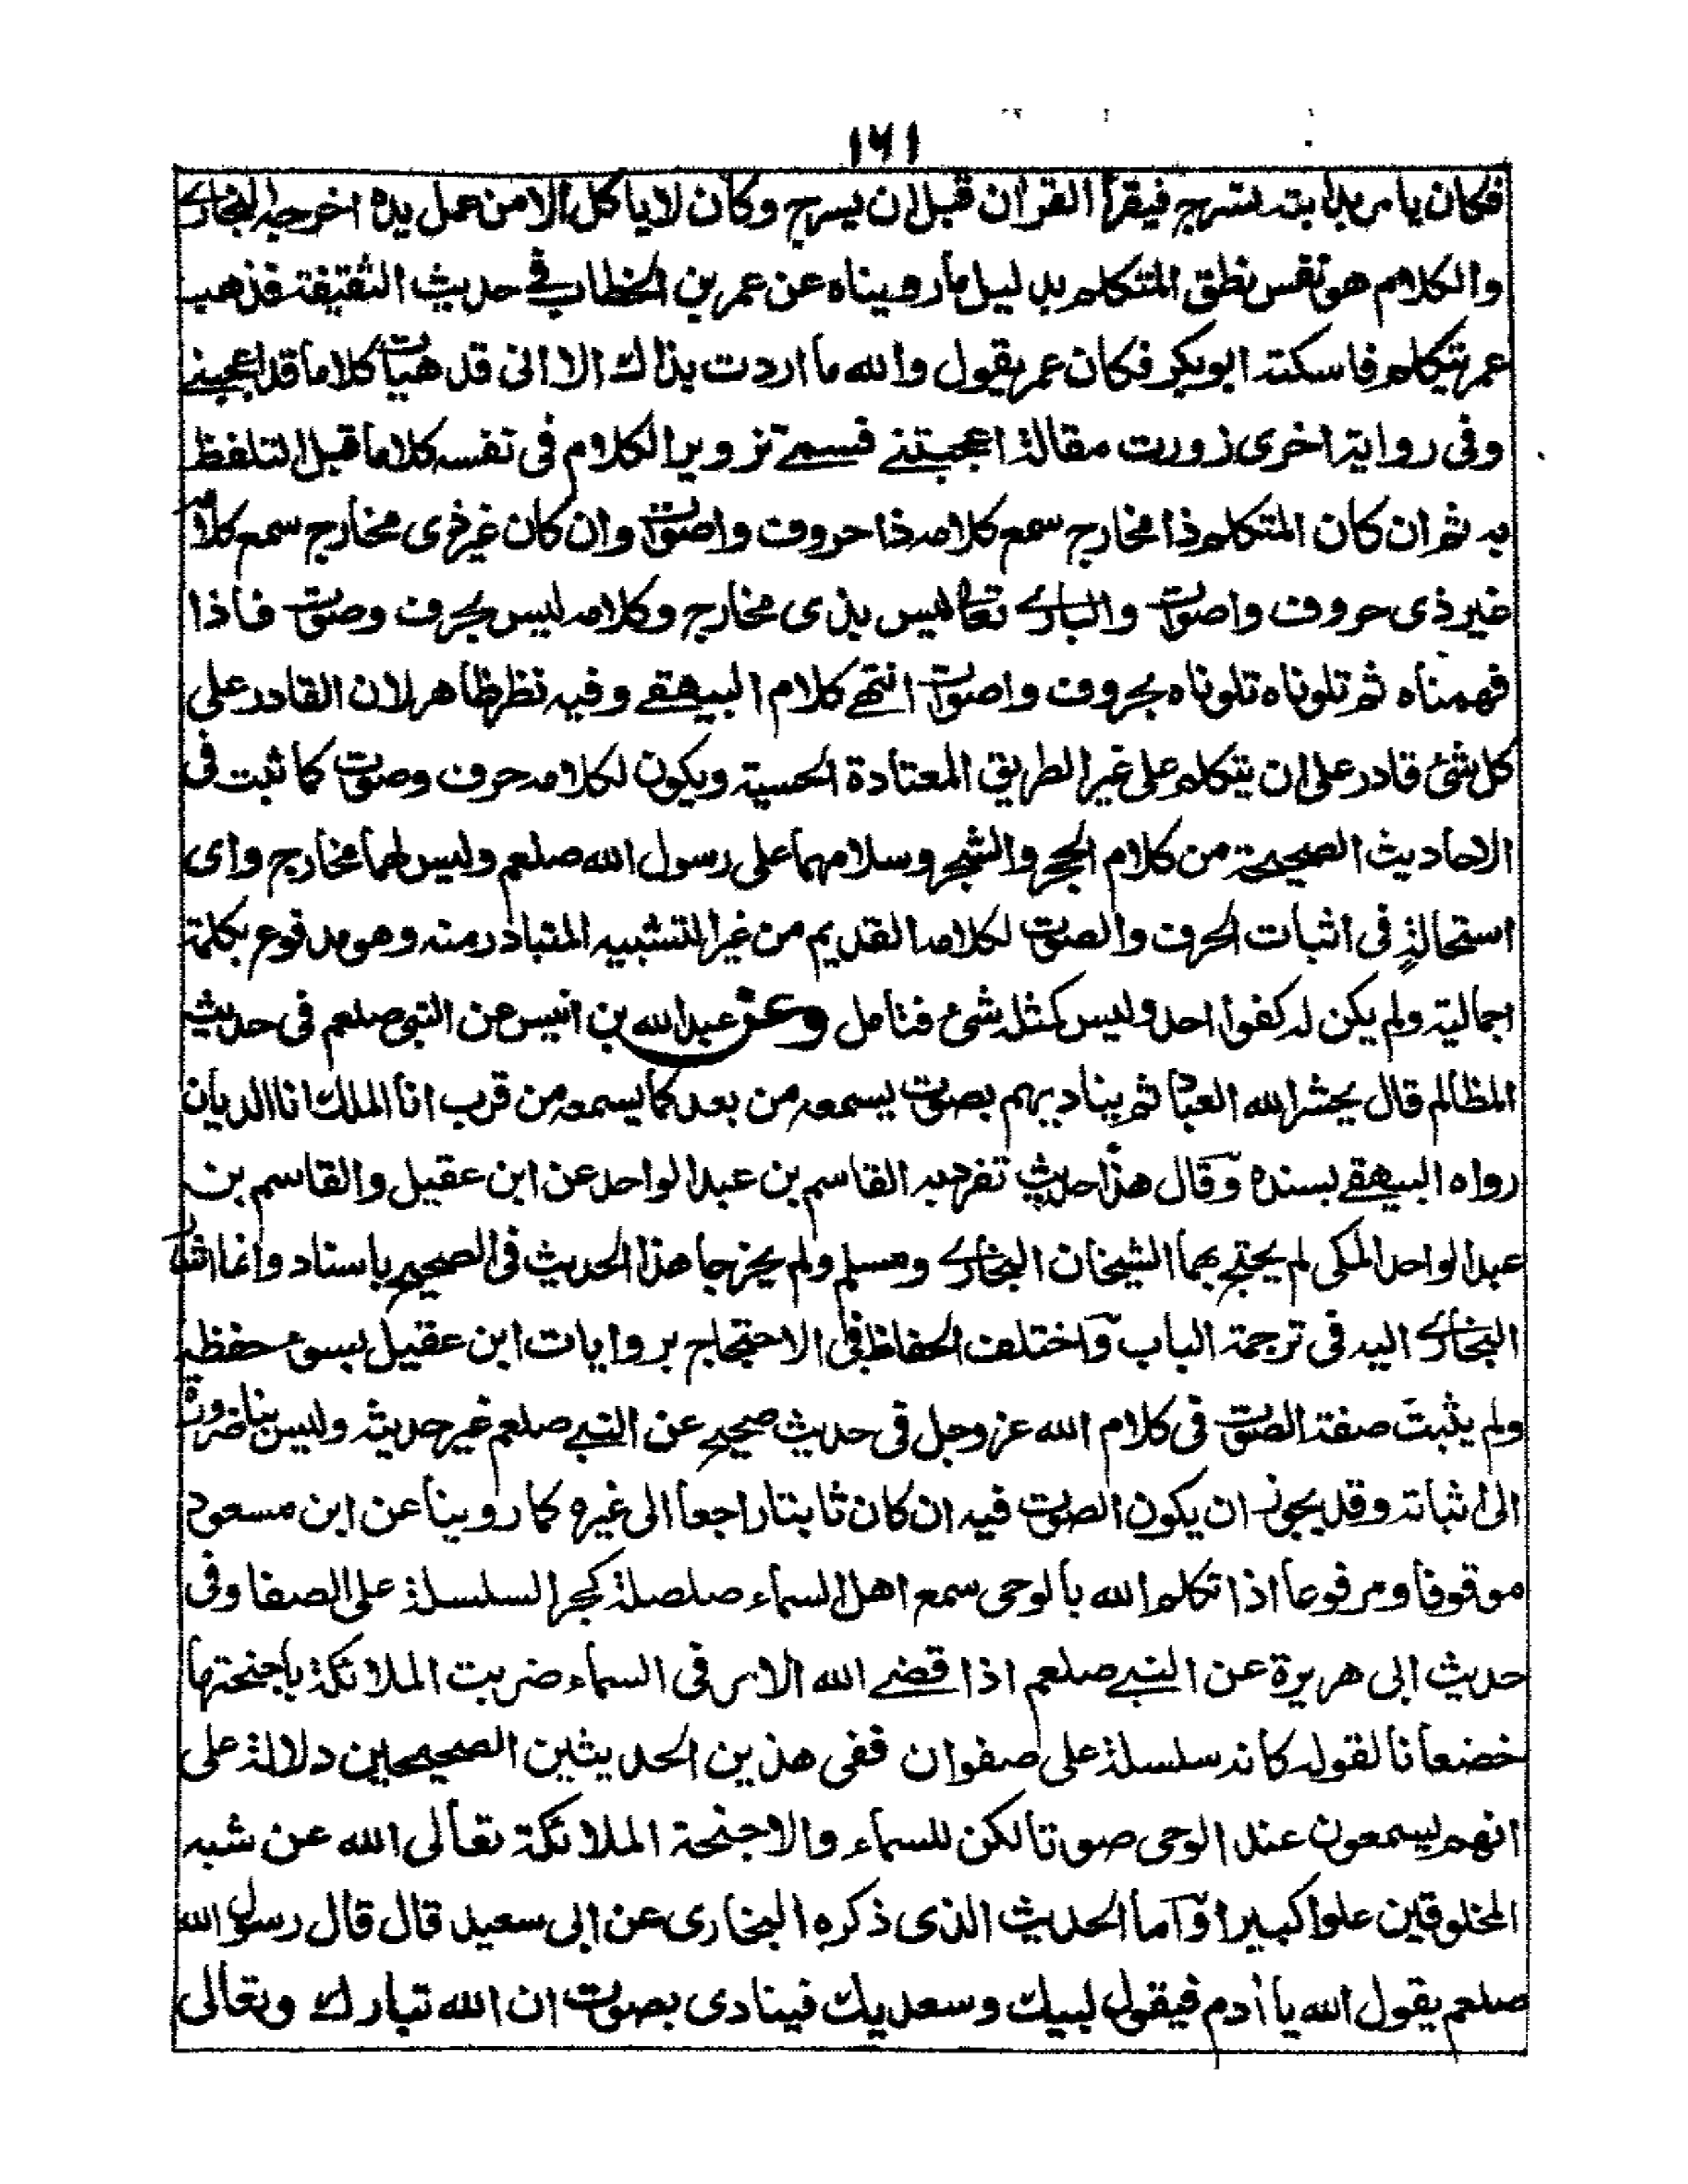 ١٦١
فكان يامر بدابته تسرج فيقرأ القرأن قبل ان يسرج وكان لا ياكل الا من عمل يده اخرجه البخارى
والكلام هو نفس نطق المتكلم بدليل ما رويناه عن عمر بن الخطاب فى حديث الثقيفة فذهب
عمر يتكلم فاسكته ابوبكر فكان عمر يقول والله ما اردت بذاك الا انى قد هيات كلاما قد اعجبنى
وفى رواية اخرى زورت مقالة اعجبتنى فسمى تزوير الكلام فى نفسه كلاما قبل التلفظ
به ثم ان كان المتكلم ذا مخارج سمع كلامه ذا حروف واصوات وان كان غير ذى مخارج سمع كلامه
غير ذى حروف واصوات والبارى تعالى ليس بذى مخارج وكلامه ليس بحرف وصوت فاذا
فهمناه ثم تلوناه تلوناه بحروف واصوات انتهى كلام البيهقى وفيه نظر ظاهر لان القادر على
كل شئ قادر على ان يتكلم على غير الطريق المعتادة الحسية ويكون لكلامه حرف وصوت كما ثبت فى
الاحاديث الصحيحة من كلام الحجر والشجر وسلامهما على رسول الله صلعم وليس لهما مخارج واى
استحالة فى اثبات الحرف والصوت لكلامه القديم من غير التشبيه المتبادر منه وهو مدفوع بكلمة
اجمالية ولم يكن له كفوا احد وليس كمثله شئ فتامل وعن عبدالله بن انيس عن النبى صلعم فى حديث
المظالم قال يحشر الله العباد ثم يناديهم بصوت يسمعه من بعد كما يسمعه من قرب انا الملك انا الديان
رواه البيهقى بسنده وقال هذا حديث تفرد به القاسم بن عبد الواحد عن ابن عقيل والقاسم بن
عبد الواحد المكى لم يحتج بهما الشيخان البخارى ومسلم ولم يخرجا هذا الحديث فى الصحيح باسناد وانما اشار
البخارى اليه فى ترجمة الباب واختلف الحفاظ فى الاحتجاج بروايات ابن عقيل بسوء حفظه
ولم يثبت صفة الصوت فى كلام الله عز وجل فى حديث صحيح عن النبى صلعم غير حديثه وليس بنا ضرورة
الى اثباته وقد يجوز ان يكون الصوت فيه ان كان ثابتا راجعا الى غيره كما روينا عن ابن مسعود
موقوفا ومرفوعا اذا تكلم الله بالوحى سمع اهل السماء صلصلة كجر السلسلة على الصفا وفى
حديث ابى هريرة عن النبى صلعم اذا قضى الله الامر فى السماء ضربت الملائكة باجنحتها
خضعانا لقوله كانه سلسلة على صفوان ففى هذين الحديثين الصحيحين دلالة على
انهم يسمعون عند الوحى صوتا لكن للسماء والاجنحة الملائكة تعالى الله عن شبه
المخلوقين علوا كبيرا وأما الحديث الذى ذكره البخارى عن ابى سعيد قال قال رسول الله
صلعم يقول الله يا أدم فيقول لبيك وسعديك فينادى بصوت ان الله تبارك وتعالى